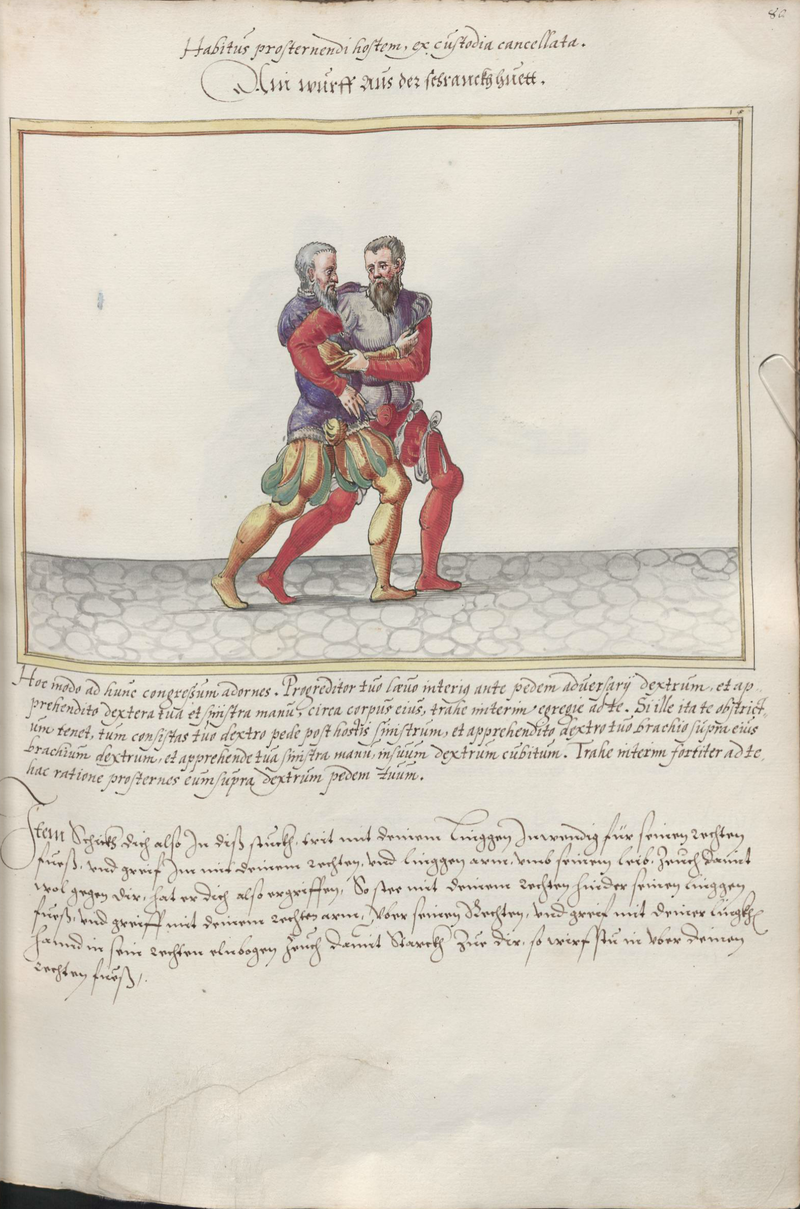 80
Habitus prosternendi hostem, ex custodia cancellata.
Ain wurff aus der schranckhhuett.
Hoc modo ad hunc congressum adornes. Progreditor tuo læuo interiq ante pedem aduersarij dextrum, et ap-
prehendito dextera tua et sinistra manu, circa corpus eius, trahe interim egregie ad te. Si ille ita te obstrict-
um tenet, tum consistas tuo dextro pede post hostis sinistrum, et apprehendito dextro tuo brachio supra eius
brachium dextrum, et apprehende tua sinistra manu, in suum dextrum cubitum. Trahe interim fortiter ad te,
hac ratione prosternes eum supra dextrum pedem tuum.
Item Schickh dich also In diß stuckh, trit mit deinem Linggen Inwendig für seinen rechten
fueß, vnd greif Im mit deinem rechten, vnd linggen arm, vmb seinem leib, Zeuch damit
wol gegen dir, hat er dich also ergriffen, So stee mit deinem rechten hinder seinen linggen
fueß, vnd greiff mit deinem rechten arm, Vber seinen Rechten, vnd greif mit deiner linggh
hannd in sein rechten elnbogen Zeuch damit Starckh Zue dir, so wirfstu in Vber deinen
rechten fueß,